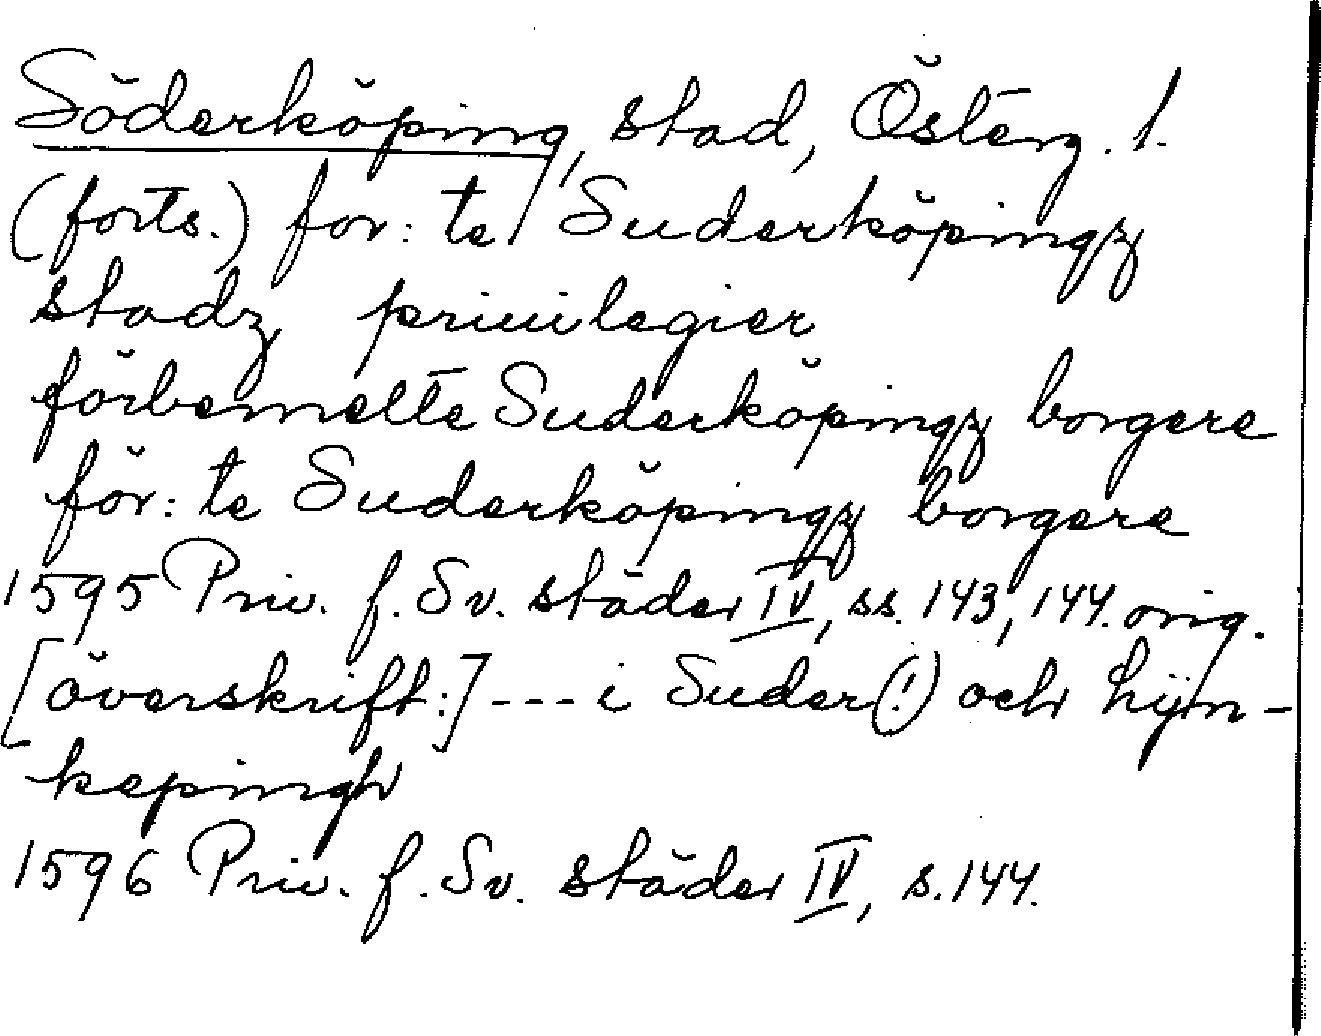 Söderköping, stad, Österg. l.
(forts.) for: te Suderköpingz
stadz priuilegier
förbemelte Suderköpingz borgere
för: te Suderköpingz borgere
1595 Priv. f. Sv. städer IV, ss. 143, 144. orig.
[överskrift:] --- i Suder(!) och Lijn-
kepingh
1596 Priv. f. Sv. städer IV, s. 144.